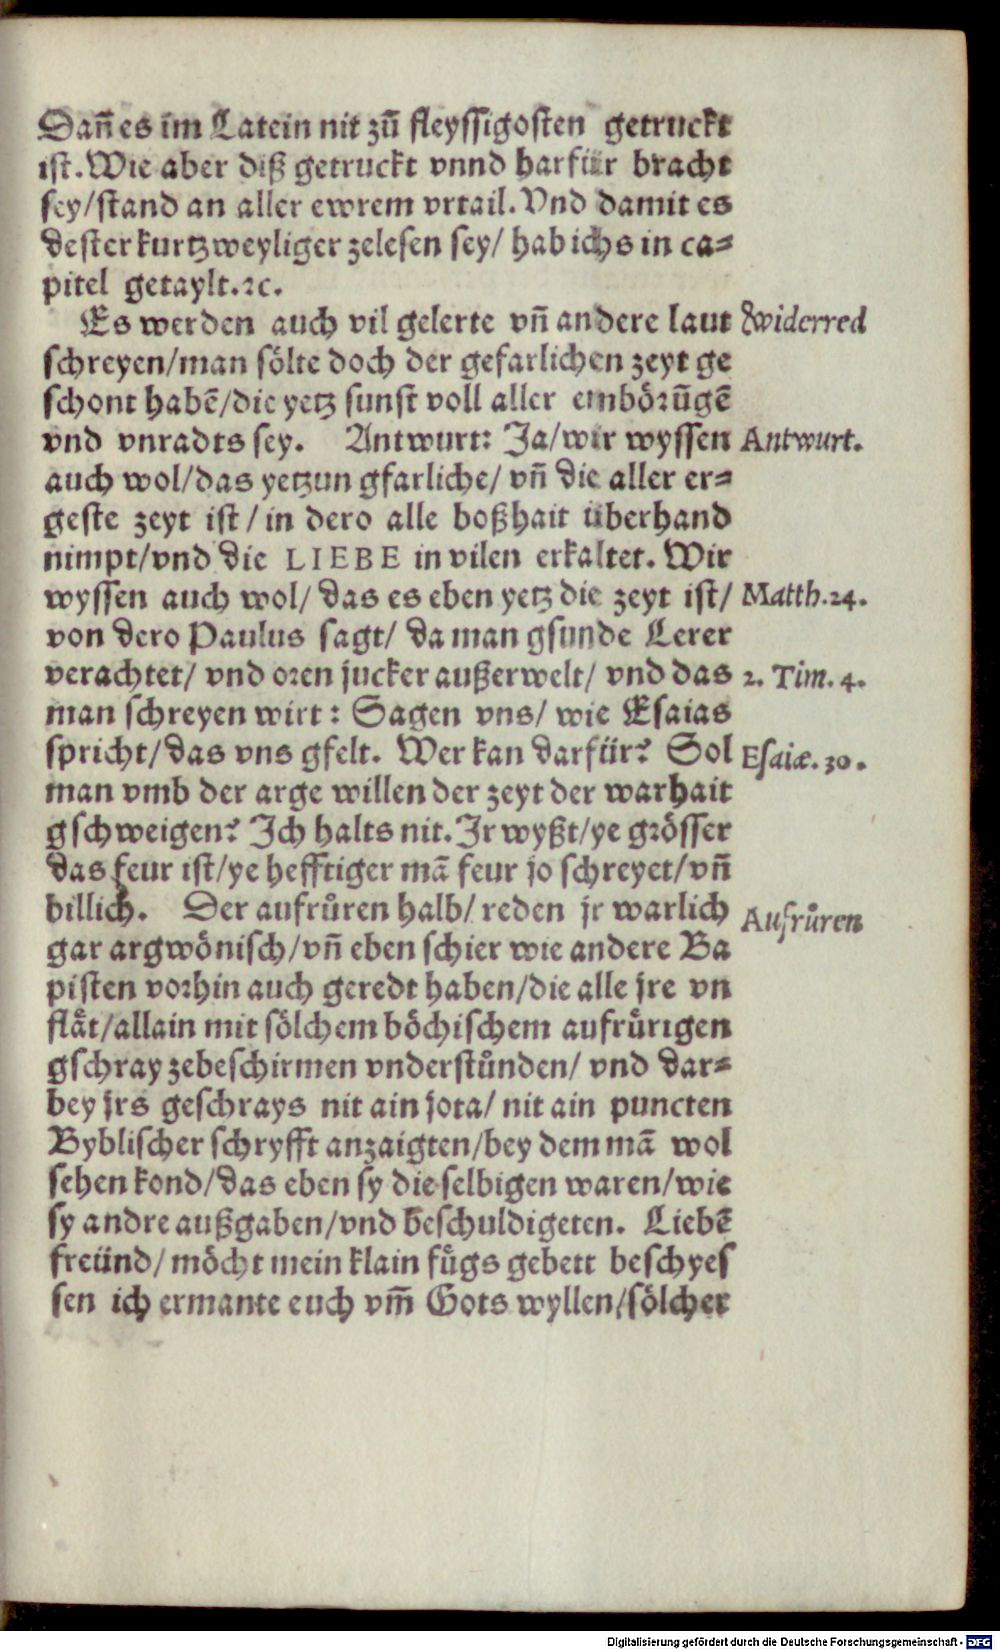 Dañ es im Latein nit zů fleyssigosten getruckt
ist. Wie aber diß getruckt vnnd harfür bracht
sey/stand an aller ewrem vrtail. Vnd damit es
dester kurtzweyliger zelesen sey/ hab ichs in ca⸗
pitel getaylt.ꝛc.
Es werden auch vil gelerte vñ andere laut
widerred
schreyen/man sölte doch der gefarlichen zeyt ge
schont habẽ/die yetz sunst voll aller embörũgẽ
vnd vnradts sey. Antwurt: Ja/wir wyssen
Antwurt.
auch wol/das yetzun gfarliche/ vñ die aller er⸗
geste zeyt ist/in dero alle boßhait überhand
nimpt/vnd die LIEBE in vilen erkaltet. Wir
wyssen auch wol/ das es eben yetz die zeyt ist/
Matth.24.
von dero Paulus sagt/ da man gsunde Lerer
verachtet/ vnd oren jucker außerwelt/ vnd das
2. Tim. 4.
man schreyen wirt: Sagen vns/ wie Esaias
spricht/das vns gfelt. Wer kan darfür? Sol
Esaiæ. 30.
man vmb der arge willen der zeyt der warhait
gschweigen? Ich halts nit. Ir wyßt/ye grösser
das feur ist/ye hefftiger mã feur jo schreyet/vñ
billich. Der aufrůren halb/ reden jr warlich
Aufrůren
gar argwönisch/vñ eben schier wie andere Ba
pisten vorhin auch geredt haben/die alle jre vn
flät/allain mit sölchem böchischem aufrůrigen
gschray zebeschirmen vnderstůnden/ vnd dar⸗
bey jrs geschrays nit ain jota/ nit ain puncten
Byblischer schryfft anzaigten/bey dem mã wol
sehen kond/das eben sy die selbigen waren/wie
sy andre außgaben/vnd beschuldigeten. Liebẽ
freünd/ möcht mein klain fůgs gebett beschyes
sen ich ermante euch vm̃ Gots wyllen/sölcher
Digitalisierung gefördert durch die Deutsche Forschungsgemeinschaft - DFG